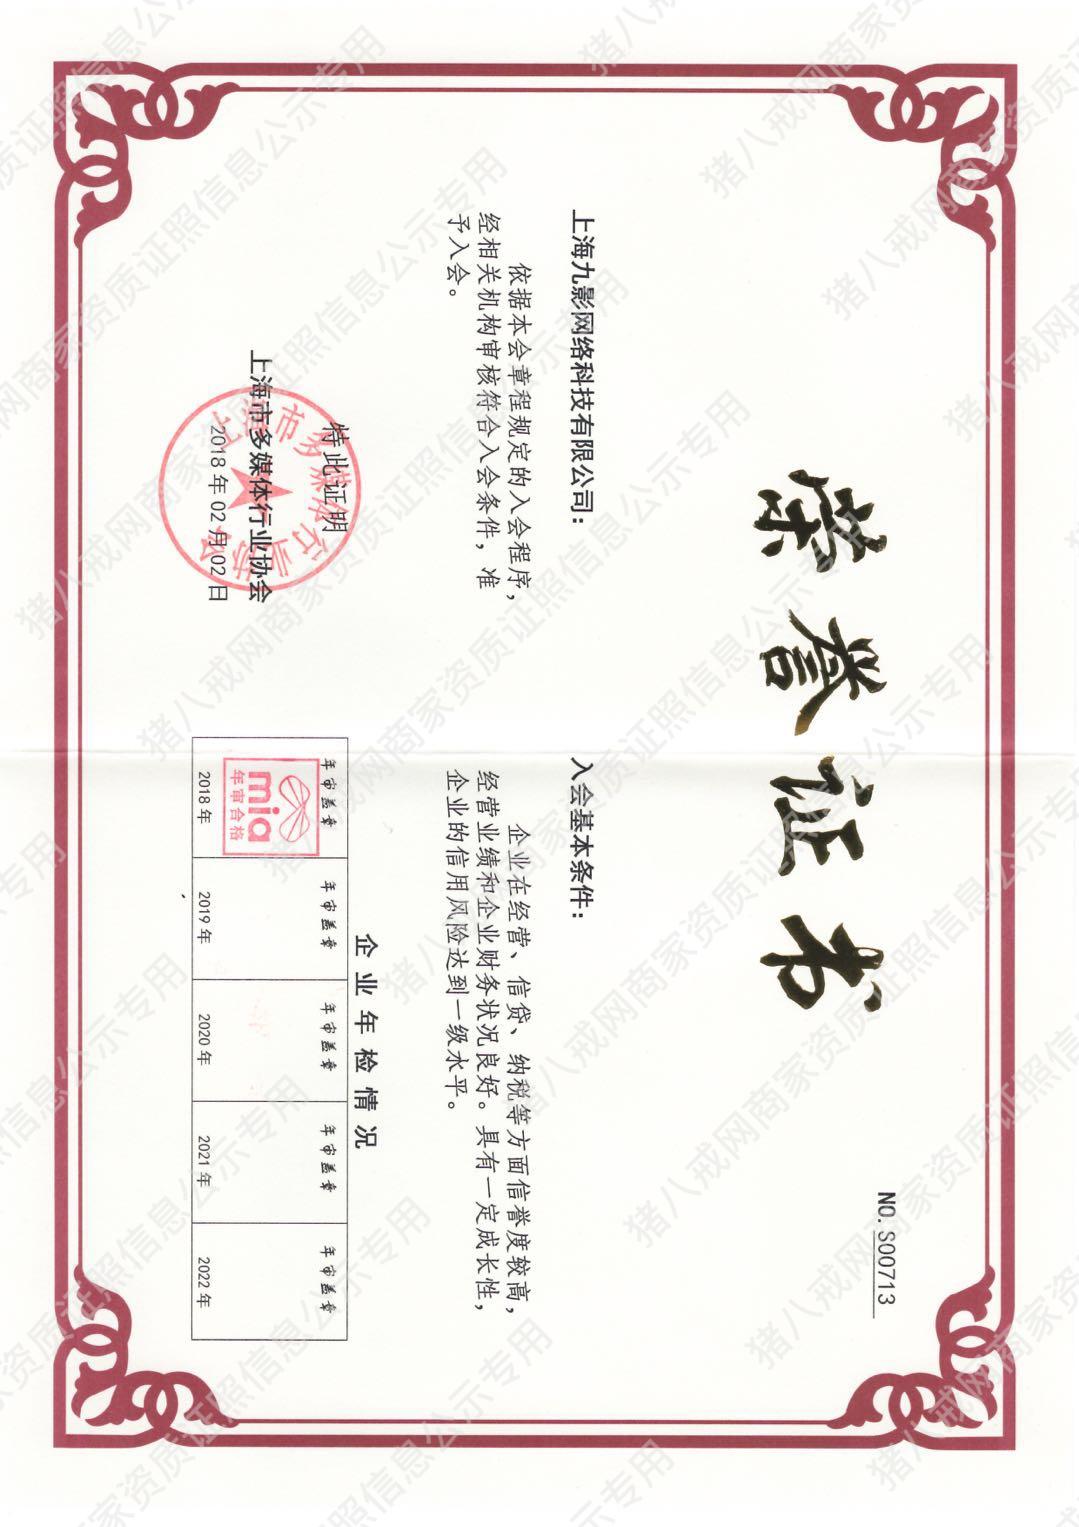 荣誉证书
NO. S00713
上海九影网络科技有限公司：
依据本会章程规定的入会程序，
经相关机构审核符合入会条件，准
予入会。
特此证明
上海市多媒体行业协会
2018 年 02 月 02 日
上海市多媒体行业协会
入会基本条件：
企业在经营、信贷、纳税等方面信誉度较高，
经营业绩和企业财务状况良好。具有一定成长性，
企业的信用风险达到一级水平。
企业年检情况
年审盖章 年审盖章 年审盖章 年审盖章 年审盖章
mia
年审合格
2018 年 2019 年 2020 年 2021 年 2022 年
猪八戒网商家资质证照信息公示专用